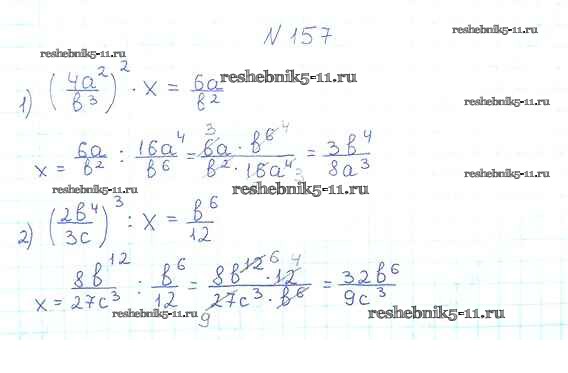 № 157
reshebnik5-11.ru
reshebnik5-11.ru
1) (4a²/b³)² · x = 6a/b²
reshebnik5-11.ru
reshebnik5-11.ru
x = 6a/b² : 16a⁴/b⁶ = 6a · b⁶/b² · 16a⁴ = 3b⁴/8a³
reshebnik5-11.ru
reshebnik5-11.ru
reshebnik5-11.ru
2) (2b⁴/3c)³ : x = b⁶/12
x = 8b¹²/27c³ : b⁶/12 = 8b¹² · 12/27c³ · b⁶ = 32b⁶/9c³
reshebnik5-11.ru
reshebnik5-11.ru